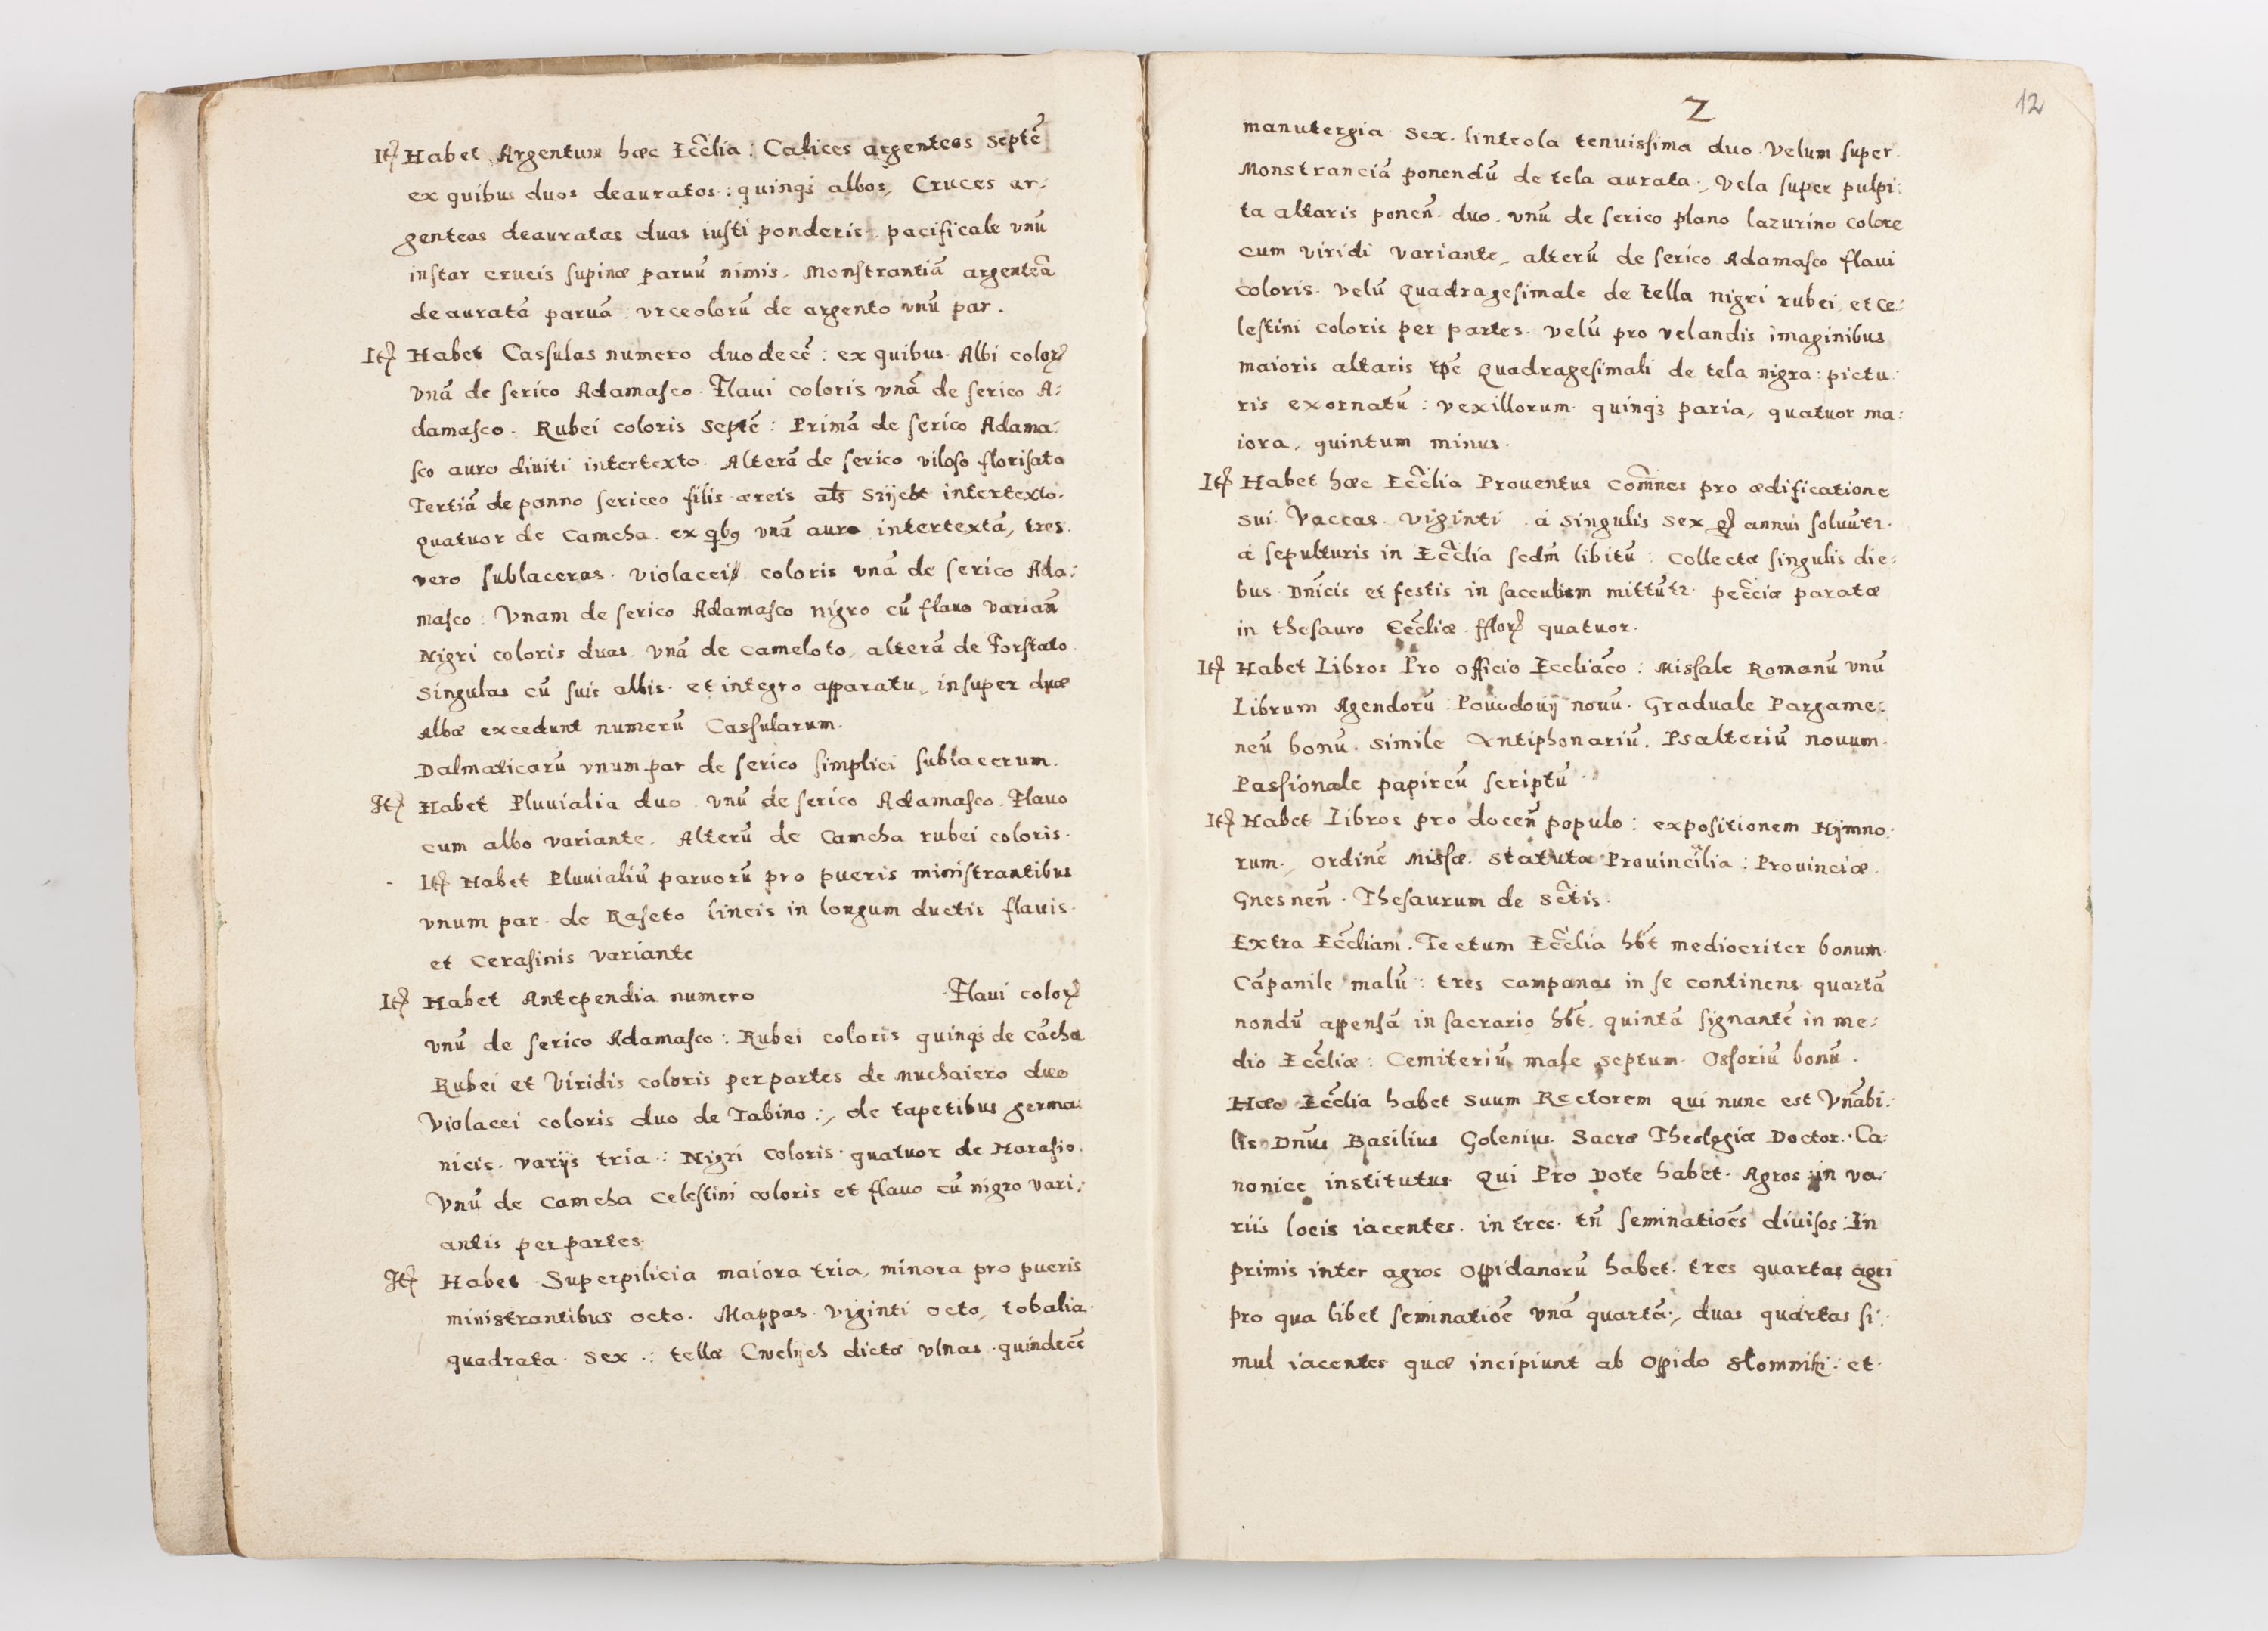 Itẽ Habet Argentum hæc Ecclia : Calices argenteos septẽ
ex quibus duos deauratos : quinqȝ albos, Cruces ar:
genteas deauratas duas iusti ponderis. pacificale vnũ
instar crucis supinæ paruũ nimis. Monstrantiã argenteã
deauratã paruã : vrceolorũ de argento vnũ par.
Itẽ Habet Cassulas numero duodecẽ : ex quibus. Albi color
vnã de serico Adamasco. Flaui coloris vnã de serico A:
damasco. Rubei coloris septẽ : Primã de serico Adama:
sco auro diuiti intertexto. Alterã de serico viloso florisato
Tertiã de panno sericeo filis æreis als Szijcht intertexto.
Quatuor de Camcha. ex qbꝰ vnã auro intertextã, tres.
vero sublaceras. violacei coloris vnã de serico Ada:
masco : Vnam de serico Adamasco nigro cũ flauo varian̄
Nigri coloris duas vnã de cameloto, alterã de Forstato
Singulas cũ suis albis. et integro apparatu, insuper duæ
Albæ excedunt numerũ Cassularum.
Dalmaticarũ vnum par de serico simplici sublacerum.
Itẽ Habet Pluuialia duo. vnũ de serico Adamasco. Flauo
cum albo variante. Alterũ de Camcha rubei coloris.
Itẽ Habet Pluuialiũ paruorũ pro pueris ministrantibus
vnum par. de Raseto lineis in longum ductis flauis.
et Cerasinis variante
Itẽ Habet Antependia numero Flaui color
vnũ de serico Adamasco : Rubei coloris quinqȝ de Cãcha
Rubei et Viridis coloris per partes de Muchaiero duo
Violacei coloris duo de Tabino :, de tapetibus germa:
nicis. varijs tria : Nigri coloris. quatuor de Harasio.
Vnũ de Camcha Celestini coloris et flauo cũ nigro vari:
antis per partes.
Itẽ Habet Superpilicia maiora tria, minora pro pueris
ministrantibus octo. Mappas. viginti octo, tobalia.
quadrata. sex .: tellæ Cwelijch dictæ vlnas. quindecẽ
2
12
manutergia sex. linteola tenuissima duo. Velum super.
Monstranciã ponendũ de tela aurata., Vela super pulpi:
ta altaris ponen̄. duo. vnũ de serico plano lazurino colore
cum viridi variante, alterũ de serico Adamasco flaui
coloris. velũ Quadragesimale de tella nigri rubei, et Ce:
lestini coloris per partes. velũ pro velandis imaginibus
maioris altaris tp̃e Quadragesimali de tela nigra : pictu:
ris exornatũ : vexillorum. quinqȝ paria, quatuor ma:
iora, quintum minus.
Itẽ Habet hæc Ecclia Prouentus com̃nes pro ædificatione
sui. Vaccas. viginti. á singulis sex annui soluũtr.
á sepulturis in Ecclia scdm̃ libitũ : Collectæ singulis die:
bus Dnicis et festis in sacculum mittũtr. pecciæ paratæ
in thesauro Eccliæ. fflor quatuor.
Itẽ Habet Libros Pro officio Eccliãco : Missale Romanũ vnũ
Librum Agendorũ : Powodouij nouũ. Graduale Pargame:
neũ bonũ. simile Antiphonariũ. Psalteriũ nouum.
Passionale papireũ scriptũ.
Itẽ Habet Libros pro docen̄ populo : expositionem Hijmno:
rum., Ordinẽ Missæ. Statuta Prouincĩlia : Prouinciæ.
Gnesnen̄. Thesaurum de Sctis.
Extra Eccliam. Tectum Ecclia hbt mediocriter bonum.
Cãpanile malũ : tres campanas in se continens quartã
nondũ appensã in sacrario hbt. quintã signantẽ in me:
dio Eccliæ : Cemiteriũ male septum. Ossoriũ bonũ.
Hæc Ecclia habet suum Rectorem qui nunc est Vnãbi:
lis Dnus Basilius Golenius. Sacræ Theologiæ Doctor. Ca:
nonice institutus. Qui Pro Dote habet. Agros in va:
riis locis iacentes. in tres. tñ seminatiões diuisos : In
primis inter agros oppidanorũ habet. tres quartas agri
pro qua libet seminatiõe vnã quartã., duas quartas si:
mul iacentes quæ incipiunt ab oppido Slomniki : et.